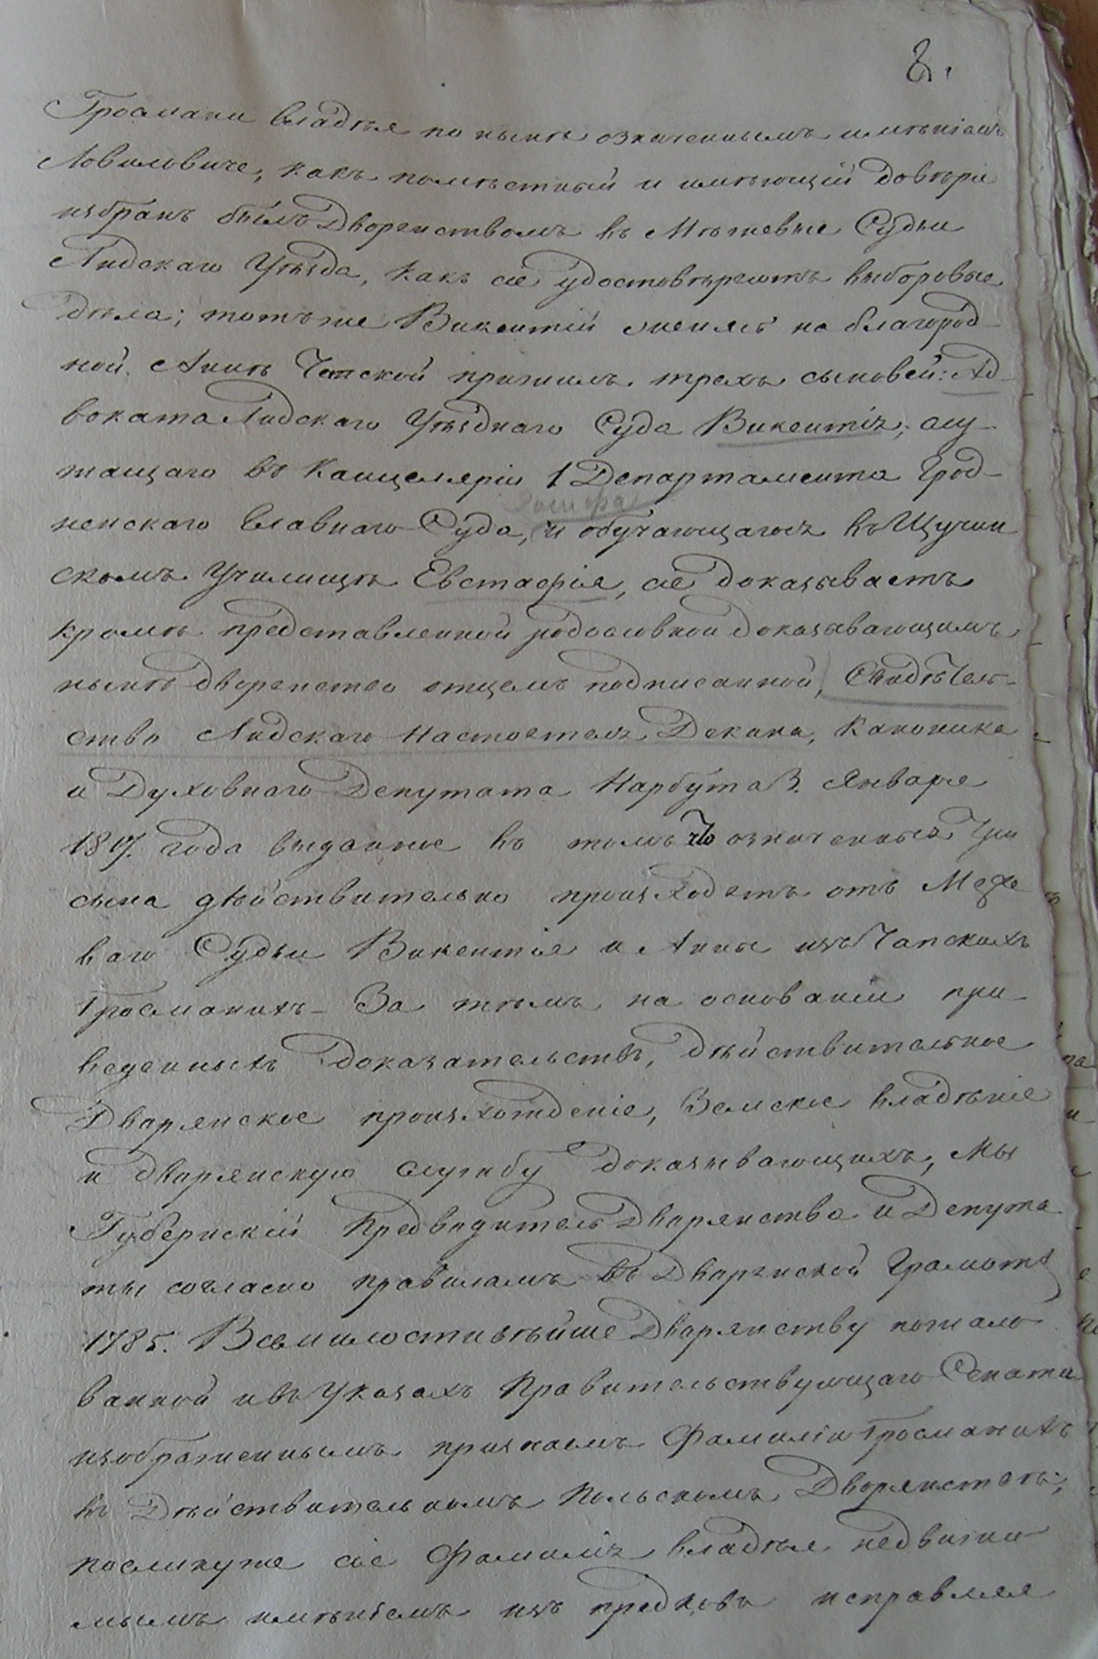 8.
Гросмани владѣя по нынѣ означеннымъ имѣніемъ
Ловиловиче, какъ помѣстный и имѣющій довѣріе
избранъ былъ Дворянствомъ въ Межевые Судьи
Лидскаго Уѣзда, какъ сіе удостовѣряютъ выборовые
дѣла; тотъ же Викентій женясь на благород-
ной Аннѣ Чапской прижилъ трехъ сыновей: Ад-
воката Лидскаго Уѣзднаго Суда Викентія, слу-
жащаго въ Канцеляріи 1 Департамента Грод-
ненскаго Главнаго Суда, и обучающагося въ Щучин
скомъ Училищѣ Евстафія, сіе доказываетъ
кромѣ представленной родословной доказывающимъ
нынѣ дворянство отцемъ подписанной, Свидѣтель-
ство Лидскаго Настоятеля, Декана, Каноника
и Духовнаго Депутата Нарбута 3. Января
года выданное въ томъ что означенные три
сына дѣйствительно происходятъ отъ Меже
ваго Судьи Викентія и Анны изъ Чапскихъ
Гросманихъ - За тѣмъ на основаніи при
веденныхъ доказательствъ, дѣйствительное
Дворянское происхожденіе, Земское владѣніе
и дворянскую службу доказывающихъ, Мы
Губернскій Предводитель Дворянства и Депута
ты согласно правиламъ въ Дворянской Грамотѣ
1785. Всемилостивѣйше Дворянству пожало
ванной и въ Указахъ Правительствующаго Сената
изображеннымъ признаемъ Фамилію Гросманихъ
въ Дѣйствительномъ Польскомъ Дворянствѣ;
поелику же сіе Фамилія владѣя недвижи
мымъ имѣніемъ изъ предковъ исправляя